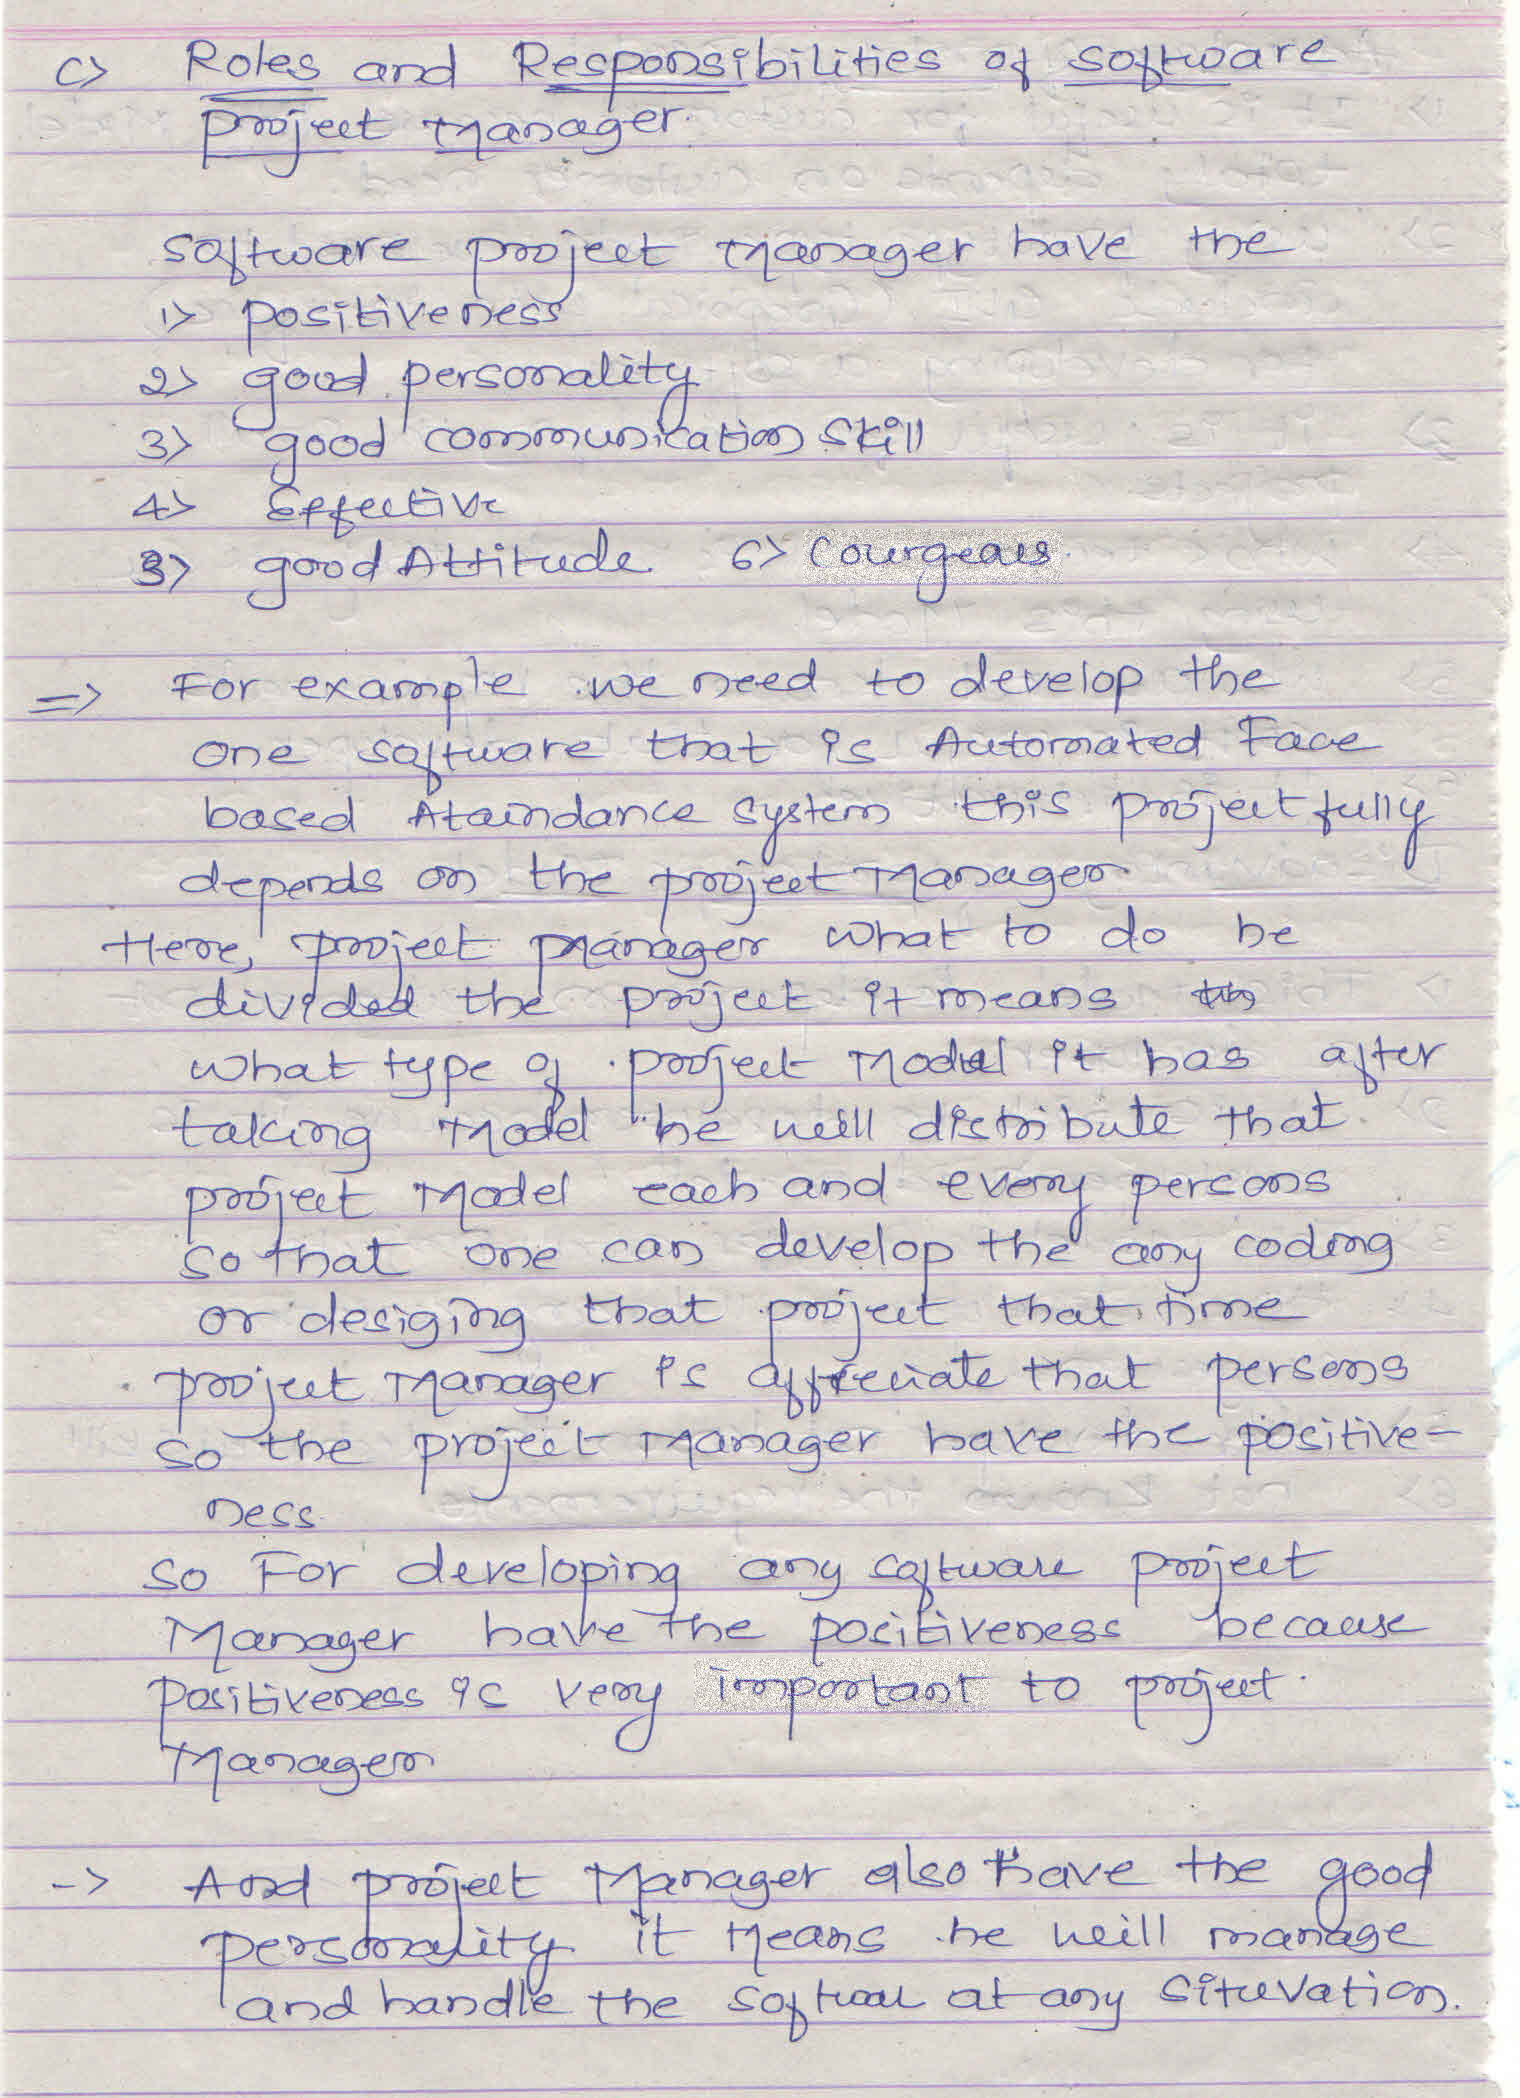 c> Roles and Responsibilities of software
project Manager.
software project Manager have the
1> positiveness
2> good personality
3> good communication skill
4> Effective
5> good Attitude 6> Courgeaus.
=> For example we need to develop the
one software that is Automated Face
based Ataindance system this project fully
depends on the project Manager.
Here, project manager what to do he
divided the project it means
what type of project Model it has after
taking Model he will distribute that
project Model each and every persons
so that one can develop the any coding
or desiging that project that time
project Manager is appreciate that persons
so the project Manager have the positive-
ness.
so For developing any software project
Manager have the positiveness because
positiveness is very important to project
Manager
-> And project Manager also have the good
personality it Means he will manage
and handle the softwar at any situvation.